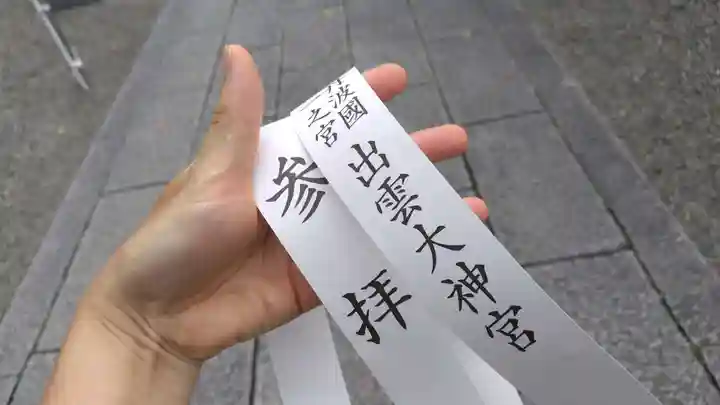 丹波國
一之宮
出雲大神宮
参拝